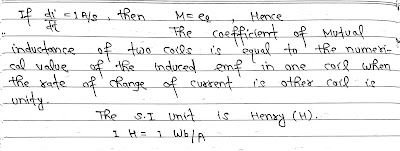 If di/dt = 1 A/s, then M = e₂, Hence
The coefficient of Mutual
inductance of two coils is equal to the numeri-
cal value of the induced emf in one coil when
the rate of change of current is other coil is
unity.
The S.I unit is Henry (H).
1 H = 1 Wb/A